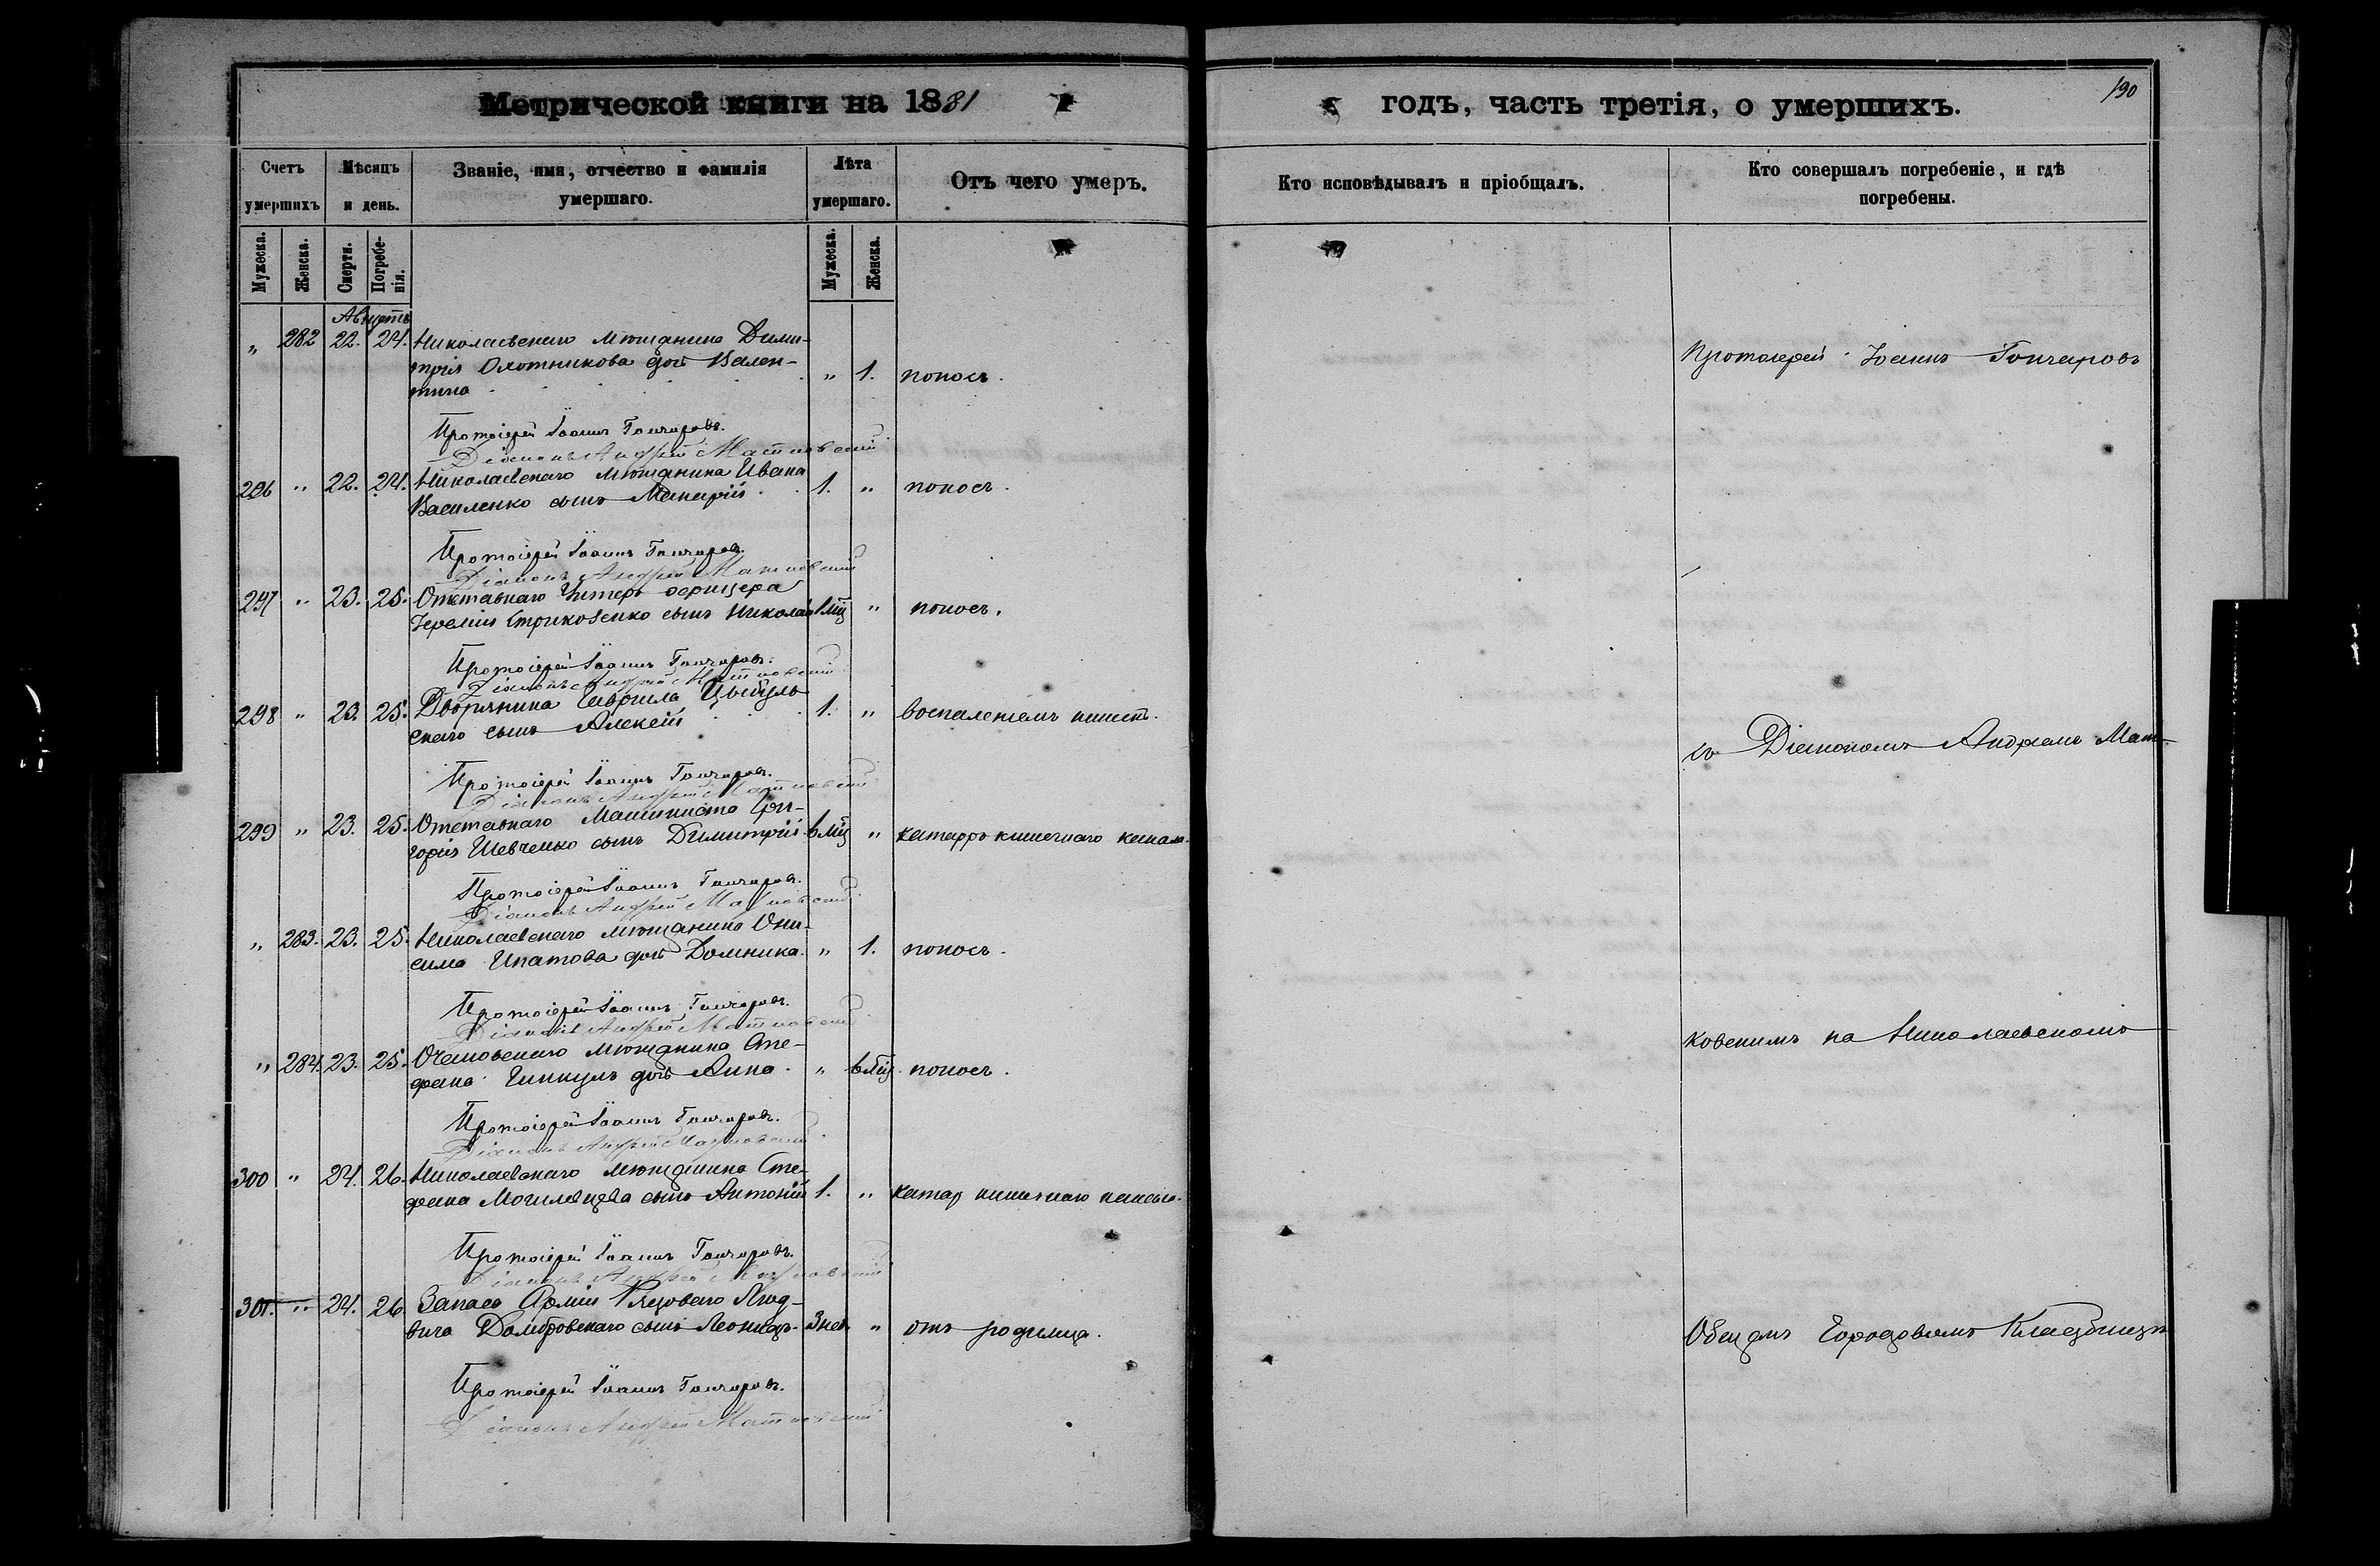 Метрической книги на 1881
годъ, часть третія, о умершихъ.
190
Счетъ умершихъ
Мѣсяцъ и день.
Званіе, имя, отчество и фамилія умершаго.
Лѣта умершаго.
Отъ чего умеръ.
Кто исповѣдывалъ и пріобщалъ.
Кто совершалъ погребеніе, и гдѣ погребены.
Мужеска. Женска. Смерти. Погребенія. Мужеска. Женска.
Августъ
" 282 22. 24. Николаевскаго мѣщанина Дими-
трія Охотникова дочь Вален-
тина " 1. поносъ.
Протоіерей Іоаннъ Гончаровъ.
Діаконъ Андрей Матковскій
296 " 22. 24. Николаевскаго мѣщанина Ивана
Василенко сынъ Макарій. 1. " поносъ.
Протоіерей Іоаннъ Гончаровъ.
Діаконъ Андрей Матковскій
297 " 23. 25. Отставнаго Унтеръ офицера
Іереміи Стрикозенко сынъ Николай " поносъ.
Протоіерей Іоаннъ Гончаровъ.
Діаконъ Андрей Матковскій
298 " 23. 25. Дворянина Гавріила Цыбуль-
скаго сынъ Алексій 1. " воспаленіемъ кишекъ.
Протоіерей Іоаннъ Гончаровъ.
Діаконъ Андрей Матковскій
299 " 23. 25. Отставнаго Машиниста Гри-
горія Шевченко сынъ Димитрій. 6 мѣц " катарръ кишечнаго канала.
Протоіерей Іоаннъ Гончаровъ.
Діаконъ Андрей Матковскій
" 283. 23. 25. Николаевскаго мѣщанина Они-
сима Ипатова дочь Домника. " 1. поносъ.
Протоіерей Іоаннъ Гончаровъ.
Діаконъ Андрей Матковскій
" 284. 23. 25. Очаковскаго мѣщанина Сте-
фана дочь Анна. " 6 мѣц. поносъ.
Протоіерей Іоаннъ Гончаровъ.
Діаконъ Андрей Матковскій
300 " 24. 26. Николаевскаго мѣщанина Сте-
фана Могилевцева сынъ Антоній 1. " катар кишечнаго канала.
Протоіерей Іоаннъ Гончаровъ.
Діаконъ Андрей Матковскій
301. " 24. 26 Запаса Арміи Рядоваго Люд-
вига Домбровскаго сынъ Леонидъ. 3 нед. " отъ родимца.
Протоіерей Іоаннъ Гончаровъ.
Діаконъ Андрей Матковскій
Протоіерей Іоаннъ Гончаровъ
съ Діакономъ Андреемъ Мат-
ковскимъ на Николаевскомъ
Общемъ Городовомъ Кладбищѣ